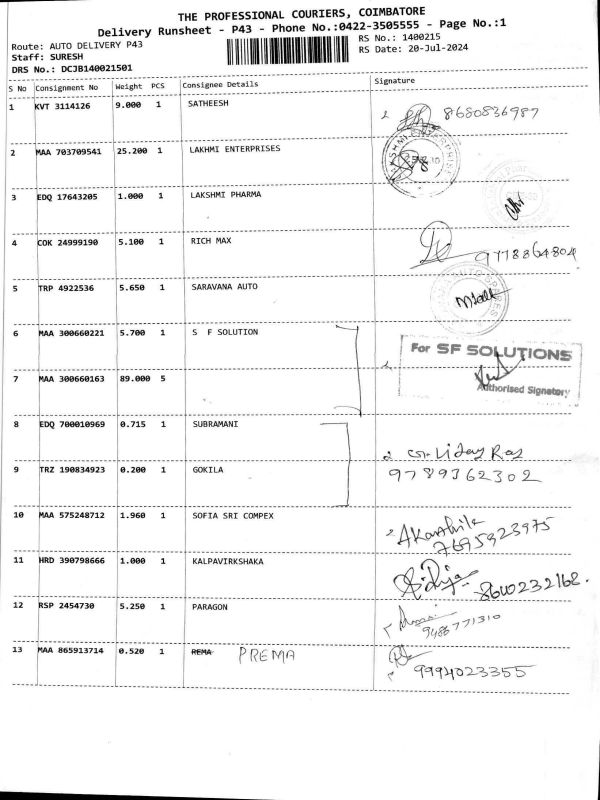 THE PROFESSIONAL COURIERS, COIMBATORE
Delivery Runsheet - P43 - Phone No.:0422-3505555 - Page No.:1
Route: AUTO DELIVERY P43 RS No.: 1400215
Staff: SURESH RS Date: 20-Jul-2024
DRS No.: DCJB140021501
S No Consignment No Weight PCS Consignee Details Signature
1 KVT 3114126 9.000 1 SATHEESH 8680836987
2 MAA 703709541 25.200 1 LAKHMI ENTERPRISES
3 EDQ 17643205 1.000 1 LAKSHMI PHARMA
4 COK 24999190 5.100 1 RICH MAX 9778864804
5 TRP 4922536 5.650 1 SARAVANA AUTO
6 MAA 300660221 5.700 1 S F SOLUTION
For SF SOLUTIONS
7 MAA 300660163 89.000 5
Authorised Signatory
8 EDQ 700010969 0.715 1 SUBRAMANI
9 TRZ 190834923 0.200 1 GOKILA 9789362302
10 MAA 575248712 1.960 1 SOFIA SRI COMPEX
7695923975
11 HRD 390798666 1.000 1 KALPAVIRKSHAKA
8600232168.
12 RSP 2454730 5.250 1 PARAGON
9486771310
13 MAA 865913714 0.520 1 REMA PREMA
9994023355